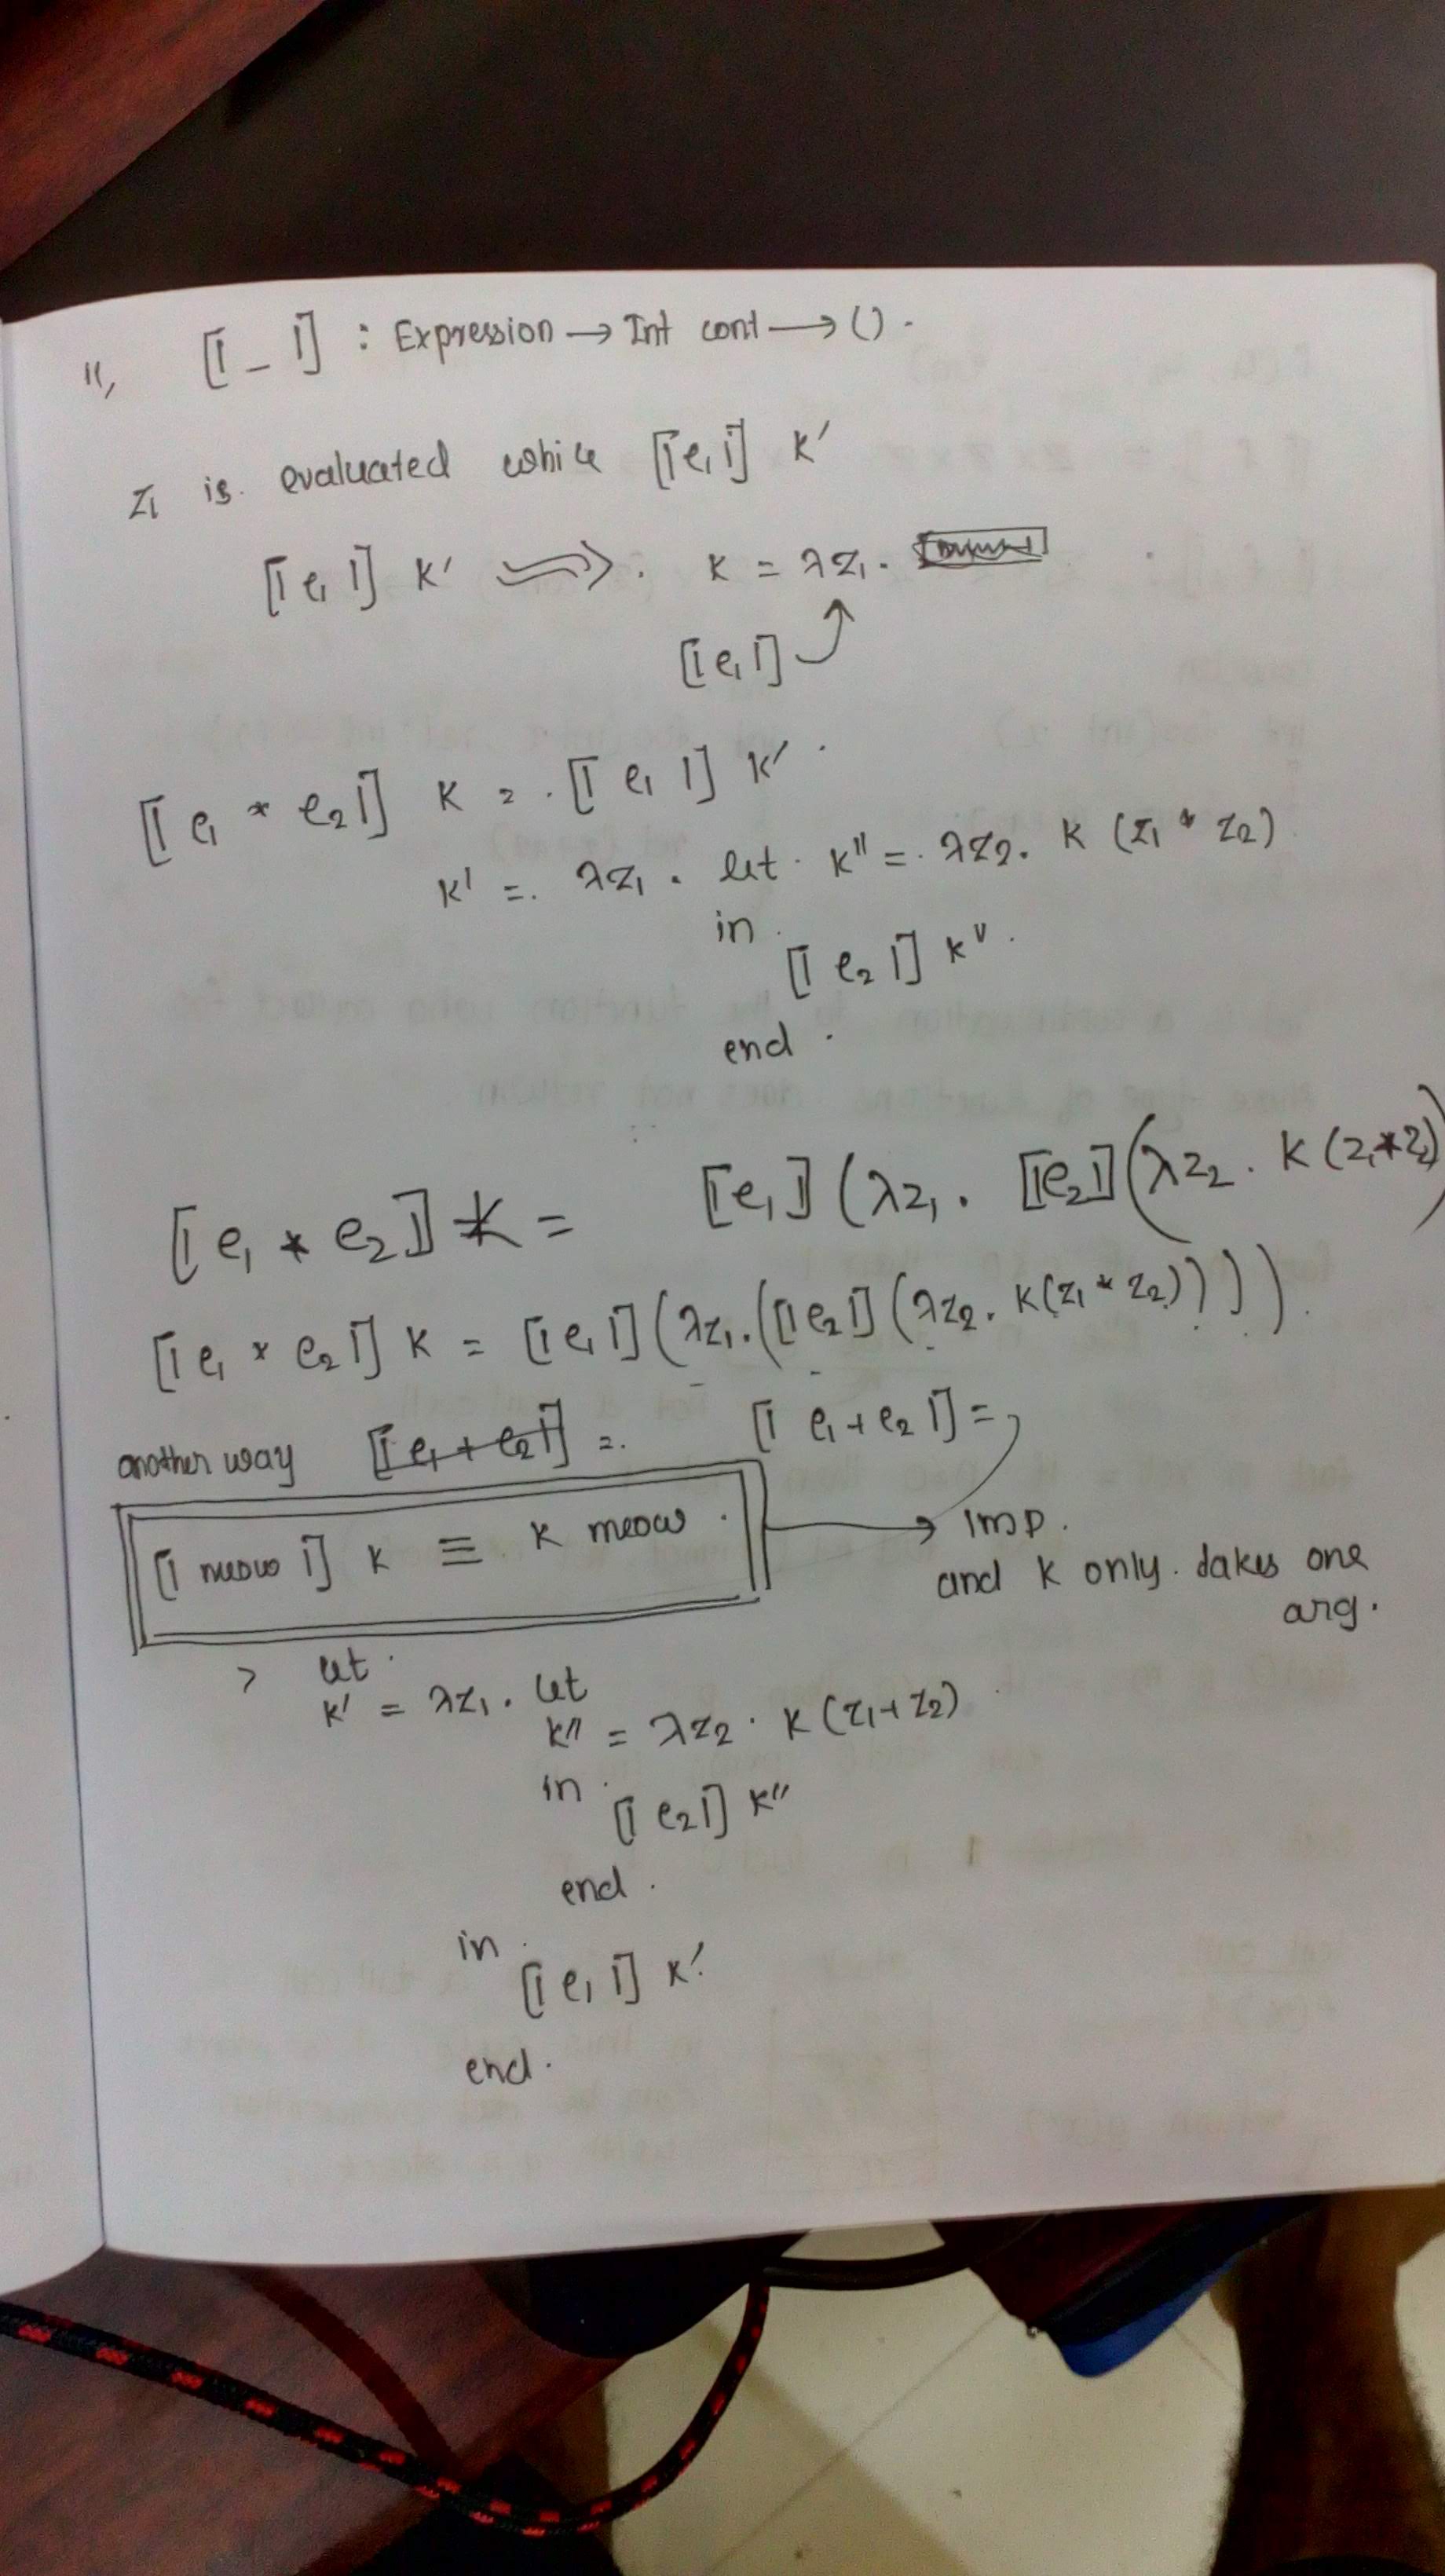 11, [| _ |] : Expression → Int cont → () .
z₁ is evaluated while [| e₁ |] K'
[| e₁ |] K' ⟹ . K = λz₁ .
[| e₁ |]
[| e₁ * e₂ |] K = . [| e₁ |] K' .
K' = . λz₁ . let . K'' = . λz₂ . K (z₁ * z₂)
in .
[| e₂ |] K'' .
end .
[| e₁ * e₂ |] K = [| e₁ |] (λz₁ . [| e₂ |] (λz₂ . K (z₁*z₂)
[| e₁ * e₂ |] K = [| e₁ |] (λz₁.([| e₂ |] (λz₂. K(z₁ * z₂)))) .
another way [| e₁ + e₂ |] = . [| e₁ + e₂ |] =
[| meow |] K ≡ K meow . → Imp .
and K only . takes one
arg .
> let .
K' = λz₁ . let
K'' = λz₂ . K (z₁+z₂)
in .
[| e₂ |] K''
end .
in .
[| e₁ |] K' .
end .